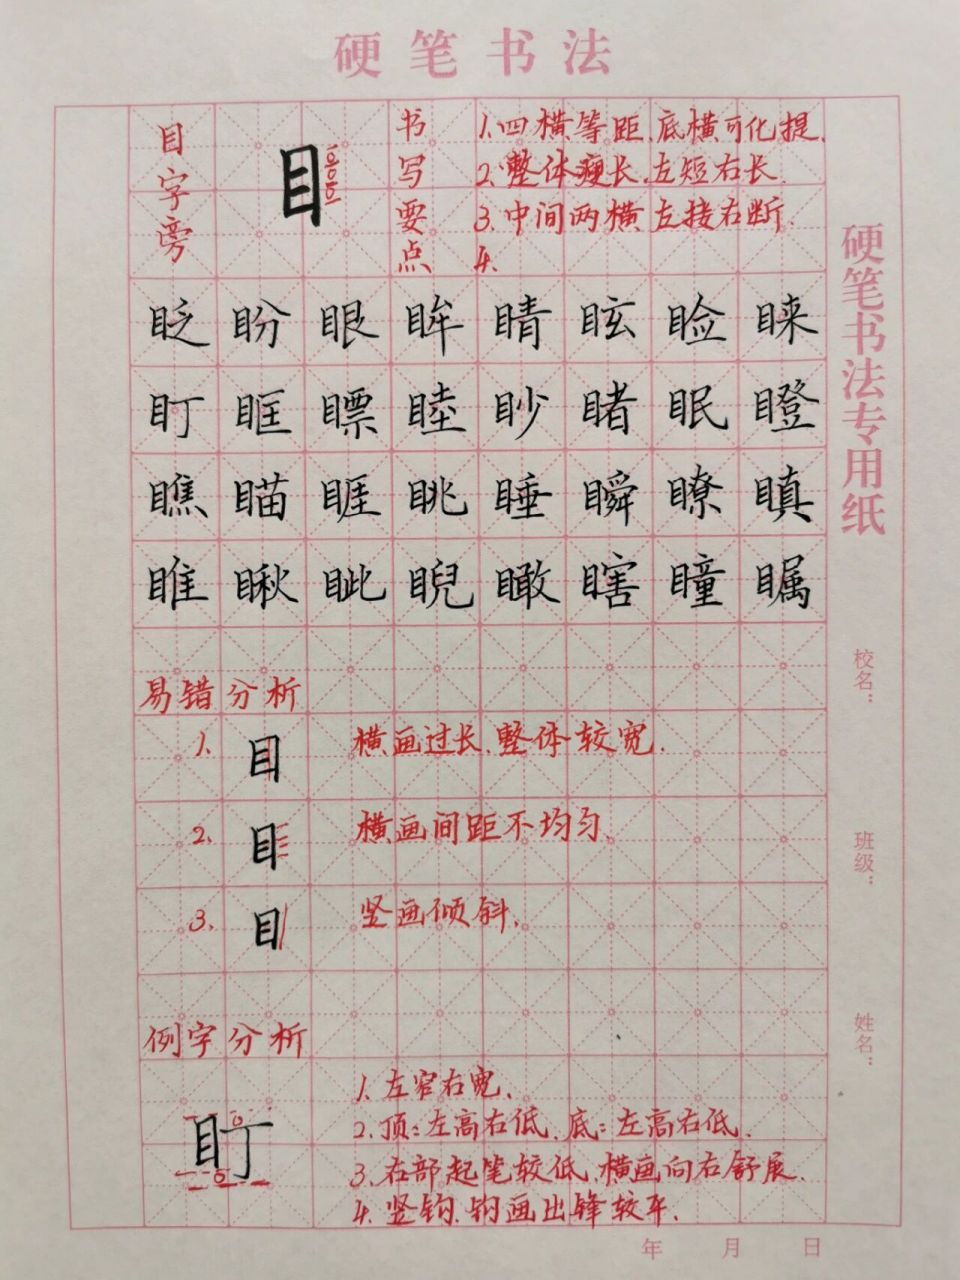 硬笔书法
目字旁
目
书写要点
1.四横等距.底横可化提.
2.整体瘦长.左短右长.
3.中间两横左接右断.
4.
眨盼眼眸睛眩睑睐
盯眶瞟睦眇睹眠瞪
瞧瞄睚眺睡瞬瞭瞋
睢瞅眦睨瞰瞎瞳瞩
易错分析
1. 目 横画过长.整体较宽.
2. 目 横画间距不均匀.
3. 目 竖画倾斜.
例字分析
盯
1.左窄右宽.
2.顶:左高右低.底:左高右低.
3.右部起笔较低.横画向右舒展.
4.竖钩.钩画出锋较平.
硬笔书法专用纸
校名:
班级:
姓名:
年 月 日